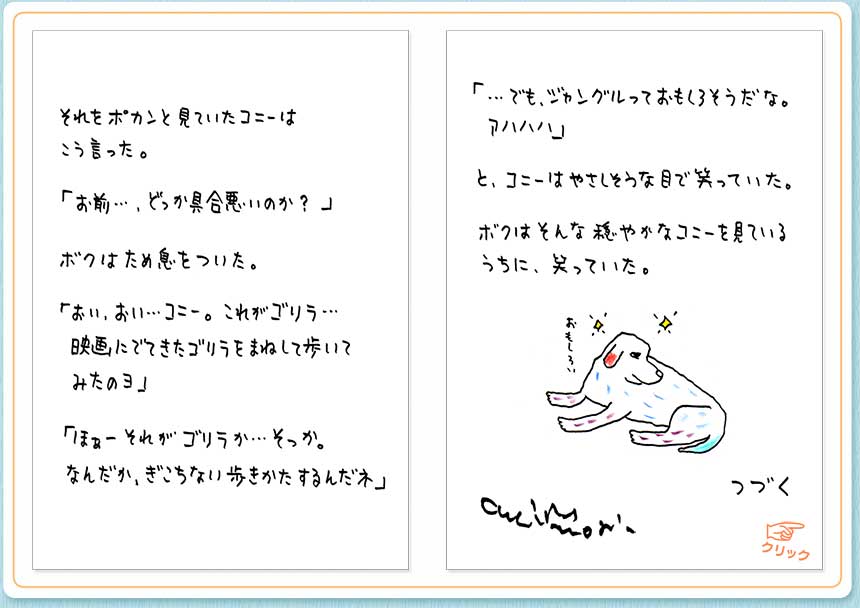 それをポカンと見ていたコニーは
こう言った。
「お前…、どっか具合悪いのか？」
ボクはため息をついた。
「おい、おい…コニー。これがゴリラ…
映画にでてきたゴリラをまねして歩いて
みたのヨ」
「ほぉー それが ゴリラか…そっか。
なんだか、ぎこちない歩きかたするんだネ」
「…でも、ジャングルっておもしろそうだな。
アハハハ」
と、コニーはやさしそうな目で笑っていた。
ボクはそんな穏やかなコニーを見ている
うちに、笑っていた。
おもしろい
つづく
クリック